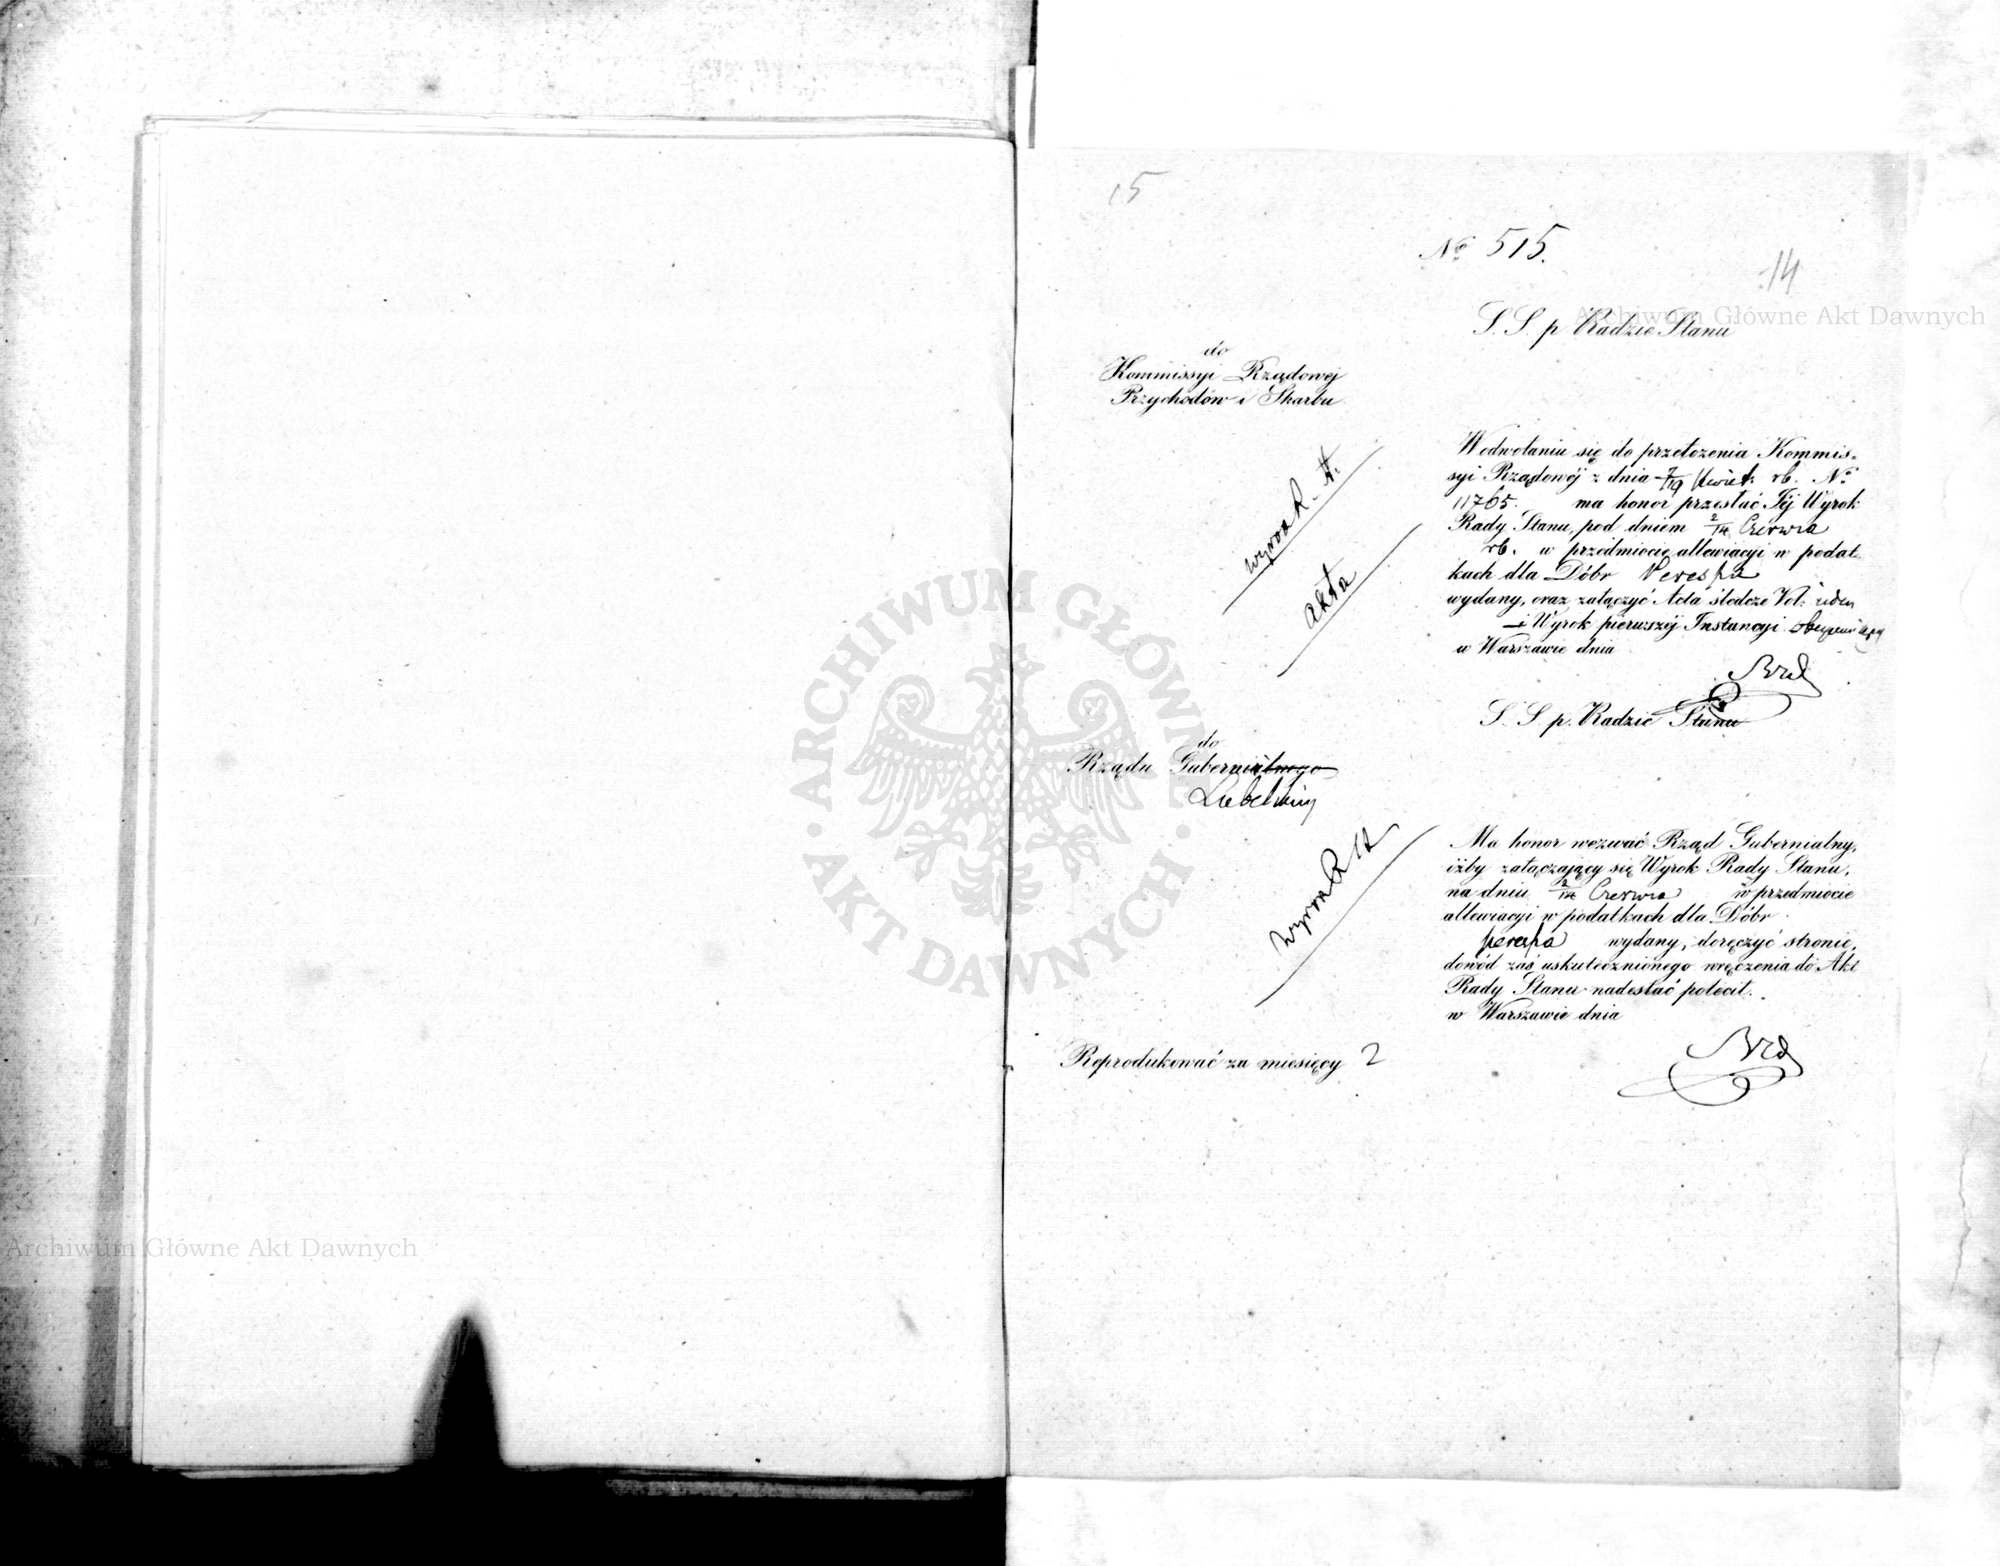 15
№ 515.
14
S. S. p. Radzie Stanu
do
Kommissyi Rządowej
Przychodów i Skarbu
Wodwołaniu się do przełożenia Kommis-
syi Rządowéj z dnia 7/19 Kwiet. rb. №
11765. ma honor przesłać Jéj Wyrok
Rady Stanu, pod dniem 2/14 Czerwca
rb. w przedmiocie allewiacyi w podat-
kach dla Dóbr Perespa
wydany, oraz załączyć Acta śledcze Vol: jeden
i Wyrok pierwszéj Instancyi
w Warszawie dnia
wyrok R. S.
akta
S. S. p. Radzie Stanu
do
Rządu Gubernialnego
Lubelskiego
Ma honor wezwać Rząd Gubernialny,
iżby załączający się Wyrok Rady Stanu,
na dniu 2/14 Czerwca w przedmiocie
allewiacyi w podatkach dla Dóbr
Perespa wydany, doręczyć stronie,
dowód zaś uskutecznionego wręczenia do Akt
Rady Stanu nadesłać polecił.
w Warszawie dnia
Reprodukować za miesięcy 2
Archiwum Główne Akt Dawnych
Archiwum Główne Akt Dawnych
ARCHIWUM GŁÓWNE · AKT DAWNYCH ·